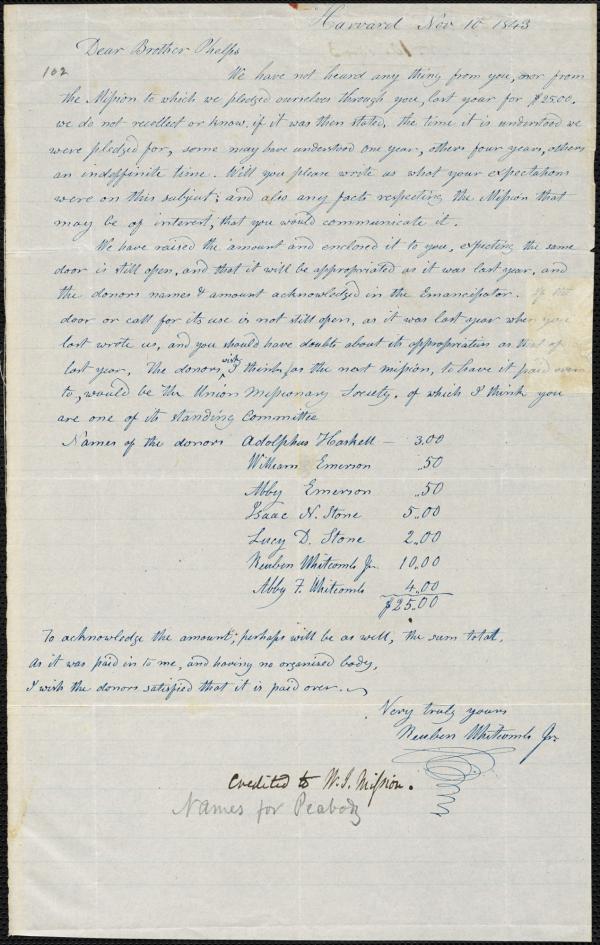 Harvard Nov 10 1843
Dear Brother Phelps
102
We have not heard any thing from you, nor from
the Mission to which we pledged ourselves through you, last year for $25.00.
we do not recollect or know, if it was then stated, the time it is understood we
were pledged for, some may have understood one year, others four years, others
an indiffinite time. Will you please write us what your expectations
were on this subject; and also any facts respecting the Mission that
may be of interest, that you would communicate it.
We have raised the amount and enclosed it to you, expecting the same
door is still open, and that it will be appropriated as it was last year, and
the donors names & amount acknowledged in the Emancipator. If the
door or call for its use is not still open, as it was last year when you
last wrote us, and you should have doubts about its appropriation as that of
last year, The donors wish I think, as the next mission, to have it paid over
to, would be the Union Missionary Society, of which I think you
are one of its standing Committee
Names of the donors Adolphus Haskell — 3.00
William Emerson .50
Abby Emerson .50
Isaac N. Stone 5.00
Lucy D. Stone 2.00
Reuben Whitcomb Jr. 10.00
Abby F. Whitcomb 4.00
$25.00
To acknowledge the amount, perhaps will be as well, the sum total,
As it was paid in to me, and having no organized body,
I wish the donors satisfied that it is paid over.
Very truly yours
Reuben Whitcomb Jr.
Credited to W.I. Mission.
Names for Peabody